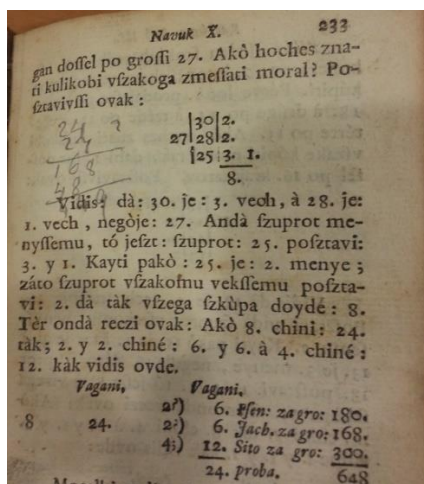 Navuk X. 233
gan dossel po grossi 27. Akò hoches zna-
ti kulikobi vszakoga zmessati moral? Po-
sztavivssi ovak :
|30|2.
27|28|2.
|25|3. 1.
8.
24
24
168
48
Vidis: dà: 30. je : 3. vech, à 28. je:
1. vech , negòje: 27. Andà szuprot me-
nyssemu, tó jeszt : szuprot: 25. posztavi:
3. y 1. Kayti pakò : 25. je: 2. menye ;
záto szuprot vszakomu vekssemu poszta-
vi: 2. dà tàk vszega szkùpa doydé : 8.
Tèr ondà reczi ovak: Akò 8. chini: 24.
tàk; 2. y 2. chiné : 6. y 6. à 4. chiné :
12. kàk vidis ovde.
Vagani, Vagani,
2?) 6. Psen: za gro: 180.
8 24. 2:) 6. Jach. za gro: 168.
4:) 12. Sito za gro: 300.
24. proba. 648